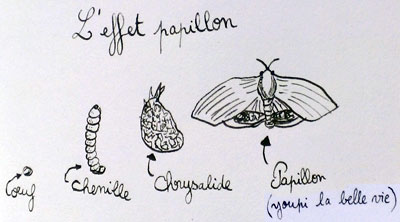 L'effet papillon
Œuf
Chenille
Chrysalide
Papillon
(youpi la belle vie)